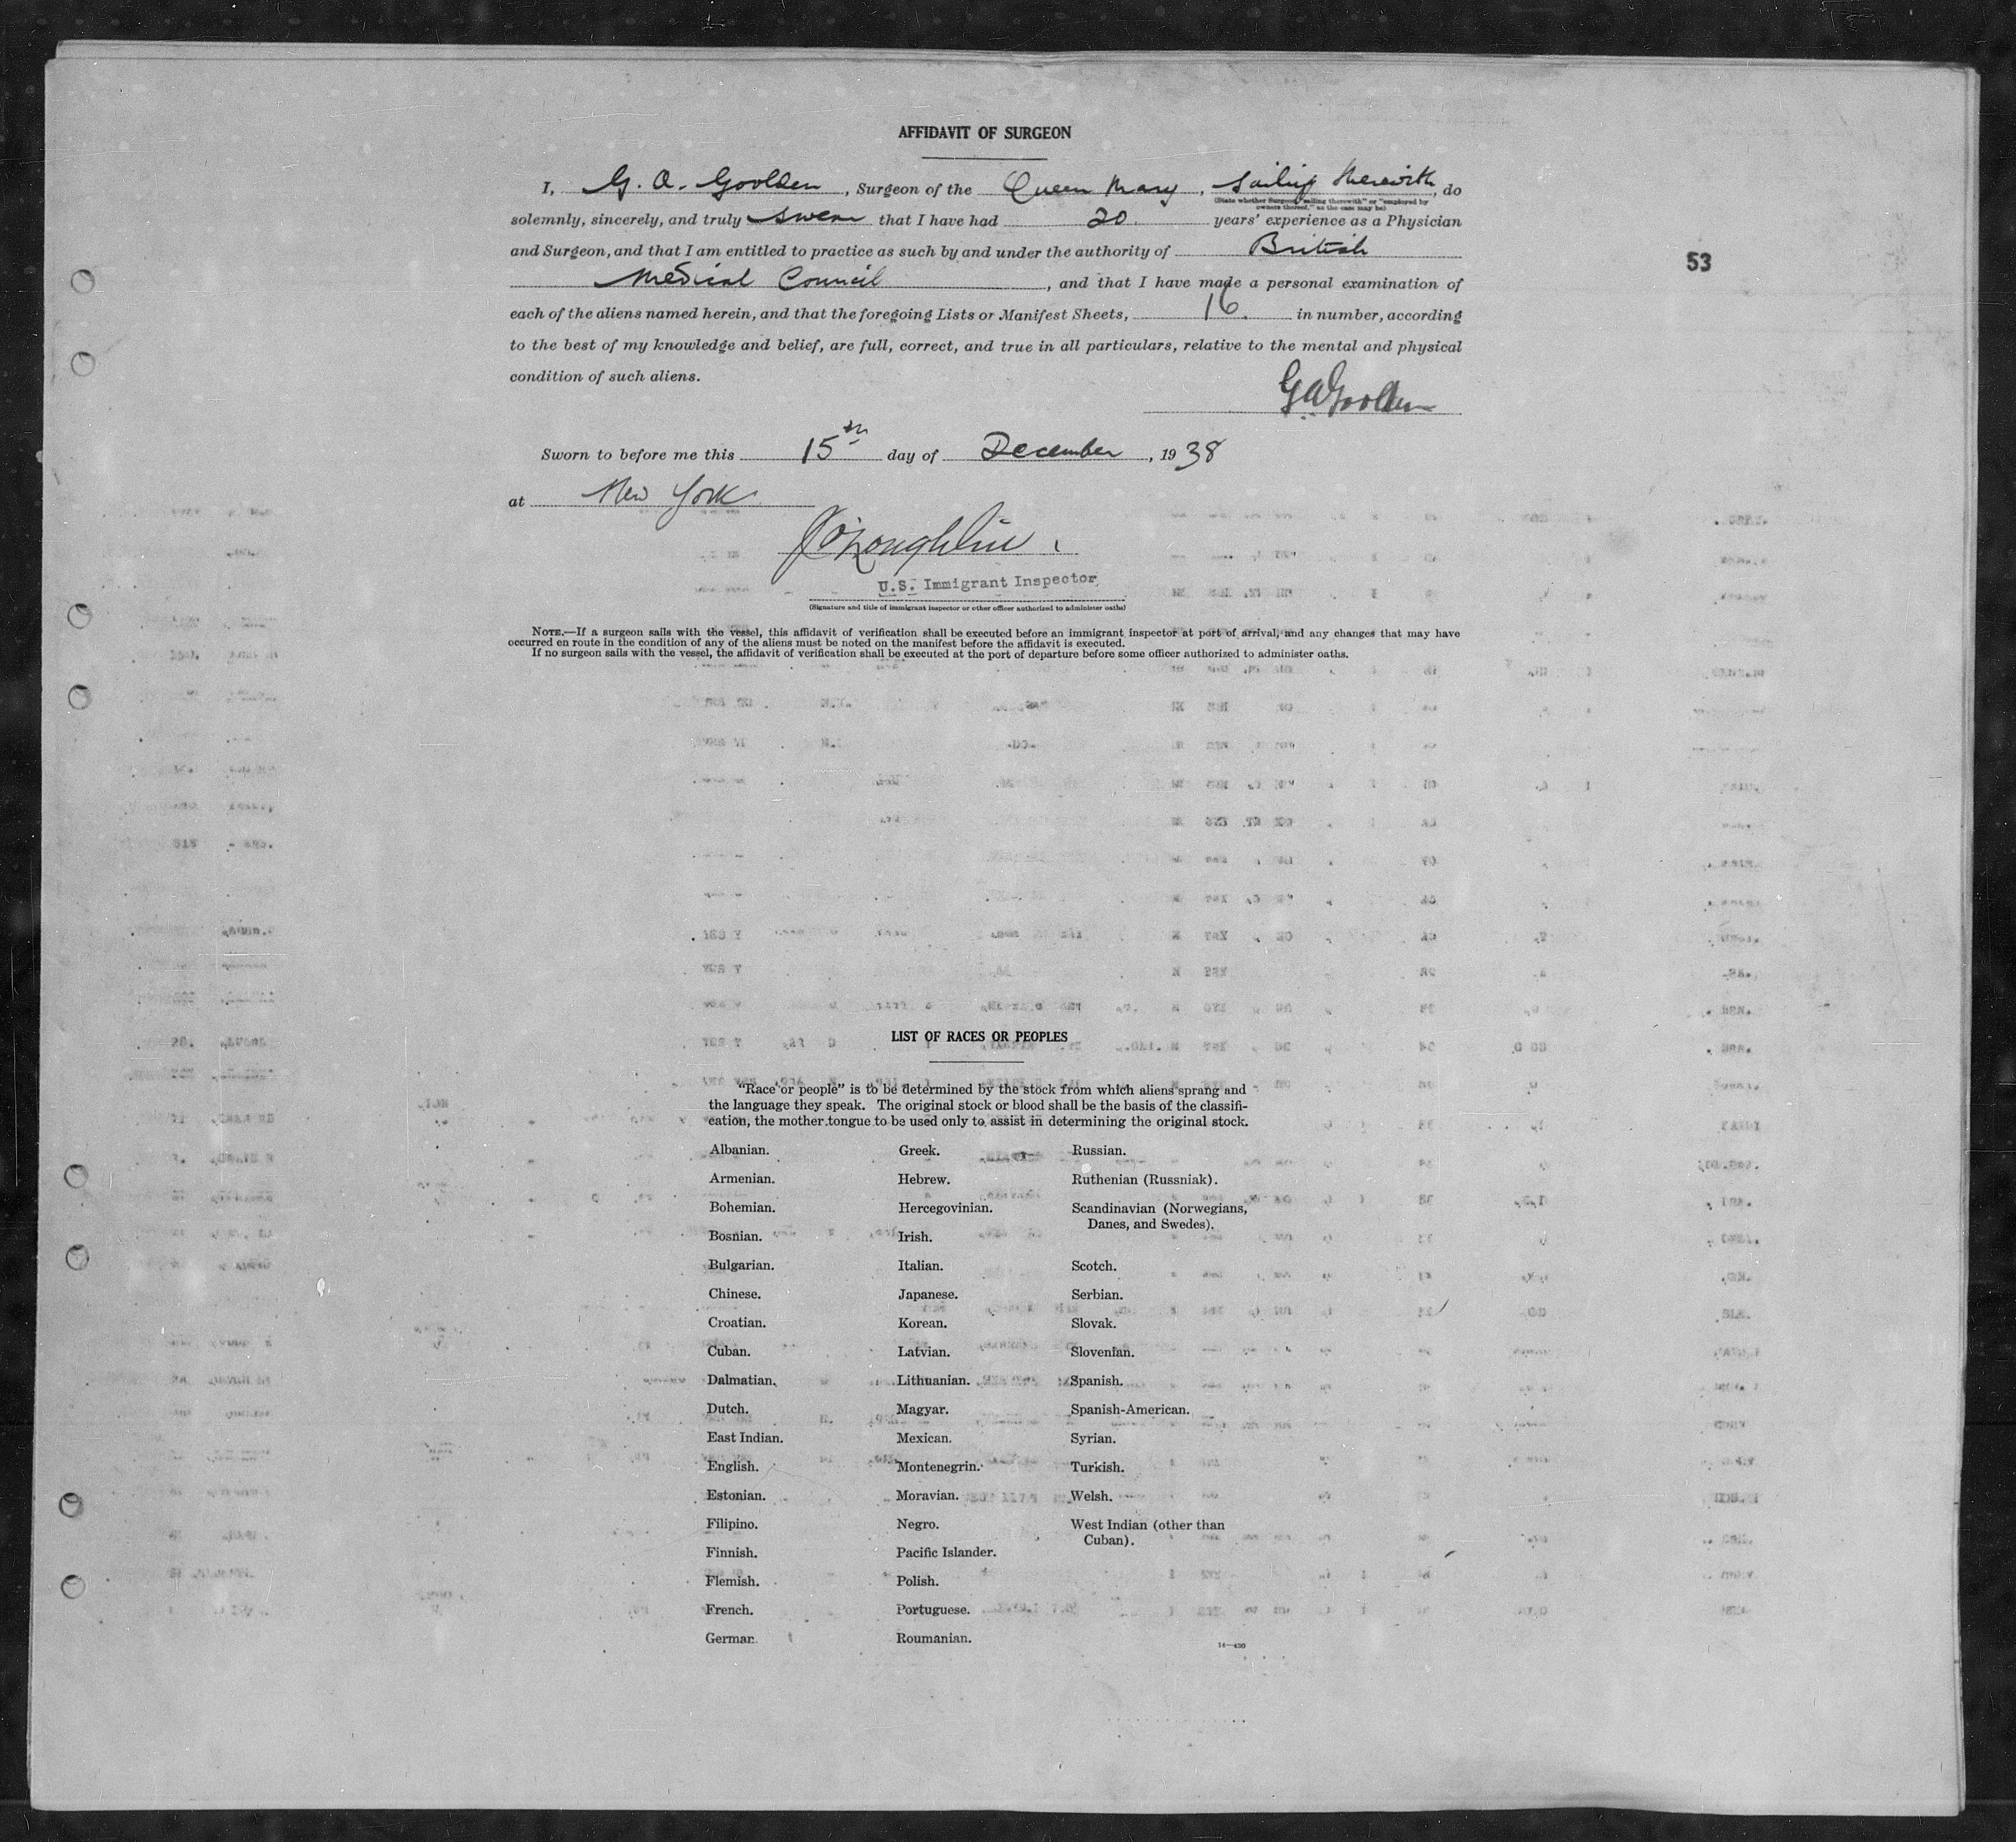 AFFIDAVIT OF SURGEON
I, G. A. Goolden, Surgeon of the Queen Mary, sailing therewith, do
(State whether Surgeon "sailing therewith" or "employed by
owners thereof," as the case may be)
solemnly, sincerely, and truly swear that I have had 20 years' experience as a Physician
and Surgeon, and that I am entitled to practice as such by and under the authority of British
53
Medical Council, and that I have made a personal examination of
each of the aliens named herein, and that the foregoing Lists or Manifest Sheets, 16. in number, according
to the best of my knowledge and belief, are full, correct, and true in all particulars, relative to the mental and physical
condition of such aliens.
G A Goolden
Sworn to before me this 15th day of December, 1938
at New York
J O'Loughlin.
U.S. Immigrant Inspector
(Signature and title of immigrant inspector or other officer authorized to administer oaths)
NOTE.—If a surgeon sails with the vessel, this affidavit of verification shall be executed before an immigrant inspector at port of arrival, and any changes that may have
occurred en route in the condition of any of the aliens must be noted on the manifest before the affidavit is executed.
If no surgeon sails with the vessel, the affidavit of verification shall be executed at the port of departure before some officer authorized to administer oaths.
LIST OF RACES OR PEOPLES
"Race or people" is to be determined by the stock from which aliens sprang and
the language they speak. The original stock or blood shall be the basis of the classifi-
cation, the mother tongue to be used only to assist in determining the original stock.
Albanian.
Armenian.
Bohemian.
Bosnian.
Bulgarian.
Chinese.
Croatian.
Cuban.
Dalmatian.
Dutch.
East Indian.
English.
Estonian.
Filipino.
Finnish.
Flemish.
French.
German.
Greek.
Hebrew.
Hercegovinian.
Irish.
Italian.
Japanese.
Korean.
Latvian.
Lithuanian.
Magyar.
Mexican.
Montenegrin.
Moravian.
Negro.
Pacific Islander.
Polish.
Portuguese.
Roumanian.
Russian.
Ruthenian (Russniak).
Scandinavian (Norwegians,
Danes, and Swedes).
Scotch.
Serbian.
Slovak.
Slovenian.
Spanish.
Spanish-American.
Syrian.
Turkish.
Welsh.
West Indian (other than
Cuban).
14—430